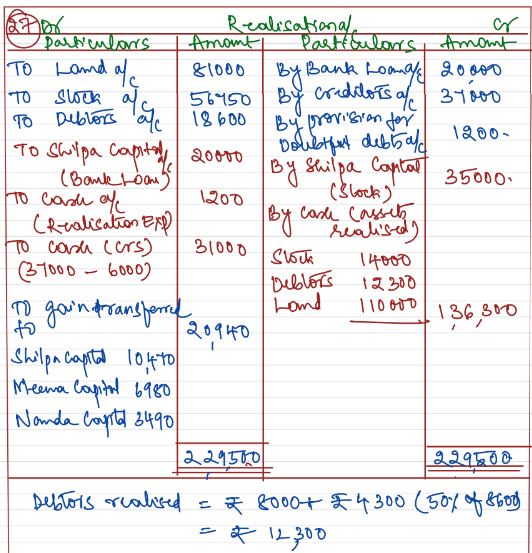 27 Dr Realisation a/c Cr
Particulars Amount Particulars Amount
To Land a/c 81000 By Bank Loan a/c 20,000
To Stock a/c 56750 By Creditors a/c 37000
To Debtors a/c 18600 By provision for
Doubtful debts a/c 1200.
To Shilpa Capital a/c 20000
(Bank Loan)
By Shilpa Capital 35000.
(Stock)
To Cash a/c 1200
(Realisation Exp)
By cash (assets
realised)
To cash (crs) 31000
(37000 - 6000)
Stock 14000
Debtors 12300
Land 110000 136,300
To gain transferred
to 20,940
Shilpa Capital 10,470
Meena Capital 6980
Nanda Capital 3490
229,500 229,500
Debtors realised = ₹ 8000 + ₹ 4300 (50% of 8600)
= ₹ 12,300